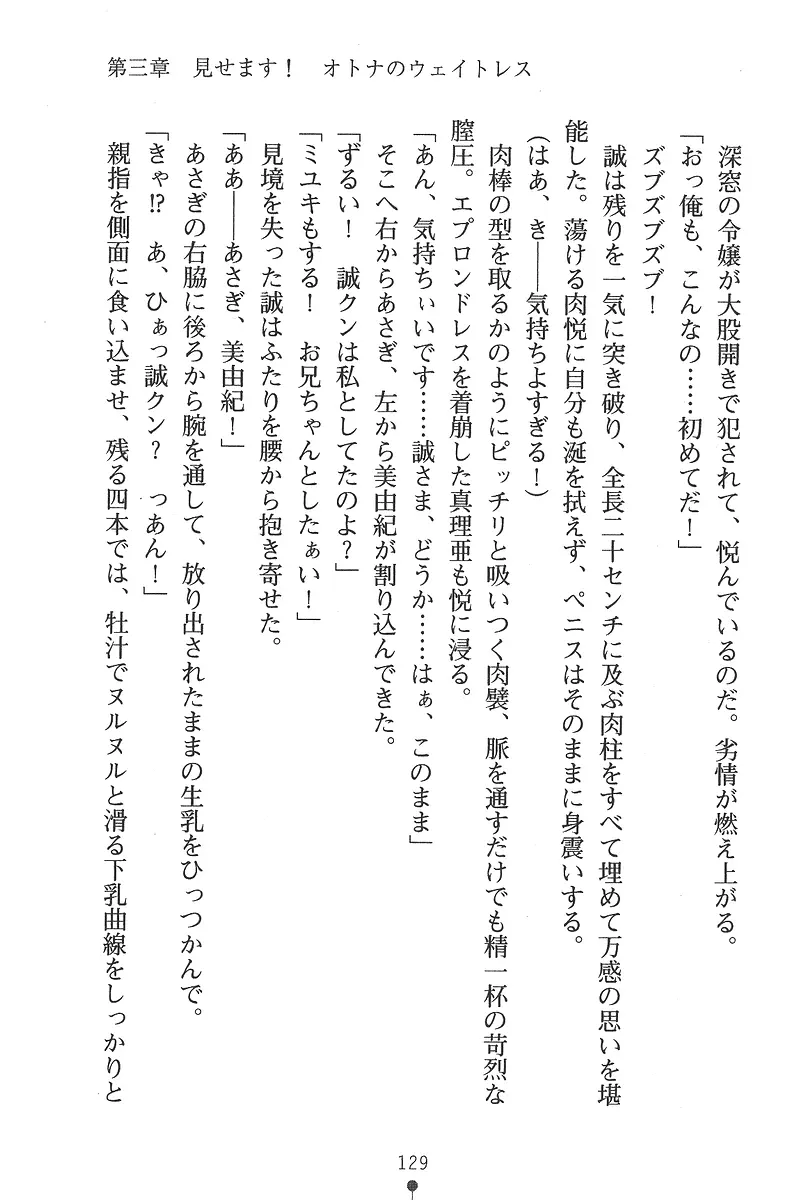 第三章　見せます！　オトナのウェイトレス
深窓の令嬢が大股開きで犯されて、悦んでいるのだ。劣情が燃え上がる。
「おっ俺も、こんなの……初めてだ！」
ズブズブズブ！
誠は残りを一気に突き破り、全長二十センチに及ぶ肉柱をすべて埋めて万感の思いを堪
能した。蕩ける肉悦に自分も涎を拭えず、ペニスはそのままに身震いする。
(はあ、き――気持ちよすぎる！)
肉棒の型を取るかのようにピッチリと吸いつく肉襞、脈を通すだけでも精一杯の苛烈な
膣圧。エプロンドレスを着崩した真理亜も悦に浸る。
「あん、気持ちぃいです……誠さま、どうか……はぁ、このまま」
そこへ右からあさぎ、左から美由紀が割り込んできた。
「ずるい！　誠クンは私としてたのよ？」
「ミユキもする！　お兄ちゃんとしたぁい！」
見境を失った誠はふたりを腰から抱き寄せた。
「ああ――あさぎ、美由紀！」
あさぎの右脇に後ろから腕を通して、放り出されたままの生乳をひっつかんで。
「きゃ!?　あ、ひぁっ誠クン？　っあん！」
親指を側面に食い込ませ、残る四本では、牡汁でヌルヌルと滑る下乳曲線をしっかりと
129